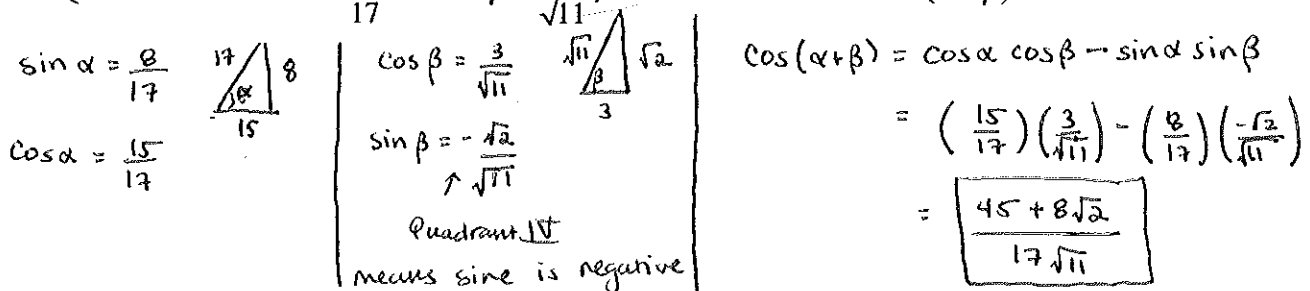 17
√11
sin α = 8/17
17
8
α
15
cos α = 15/17
cos β = 3/√11
√11
√2
β
3
sin β = -√2/√11
↑
Quadrant IV
means sine is negative
cos(α+β) = cos α cos β - sin α sin β
= (15/17)(3/√11) - (8/17)(-√2/√11)
= 45 + 8√2 / 17√11